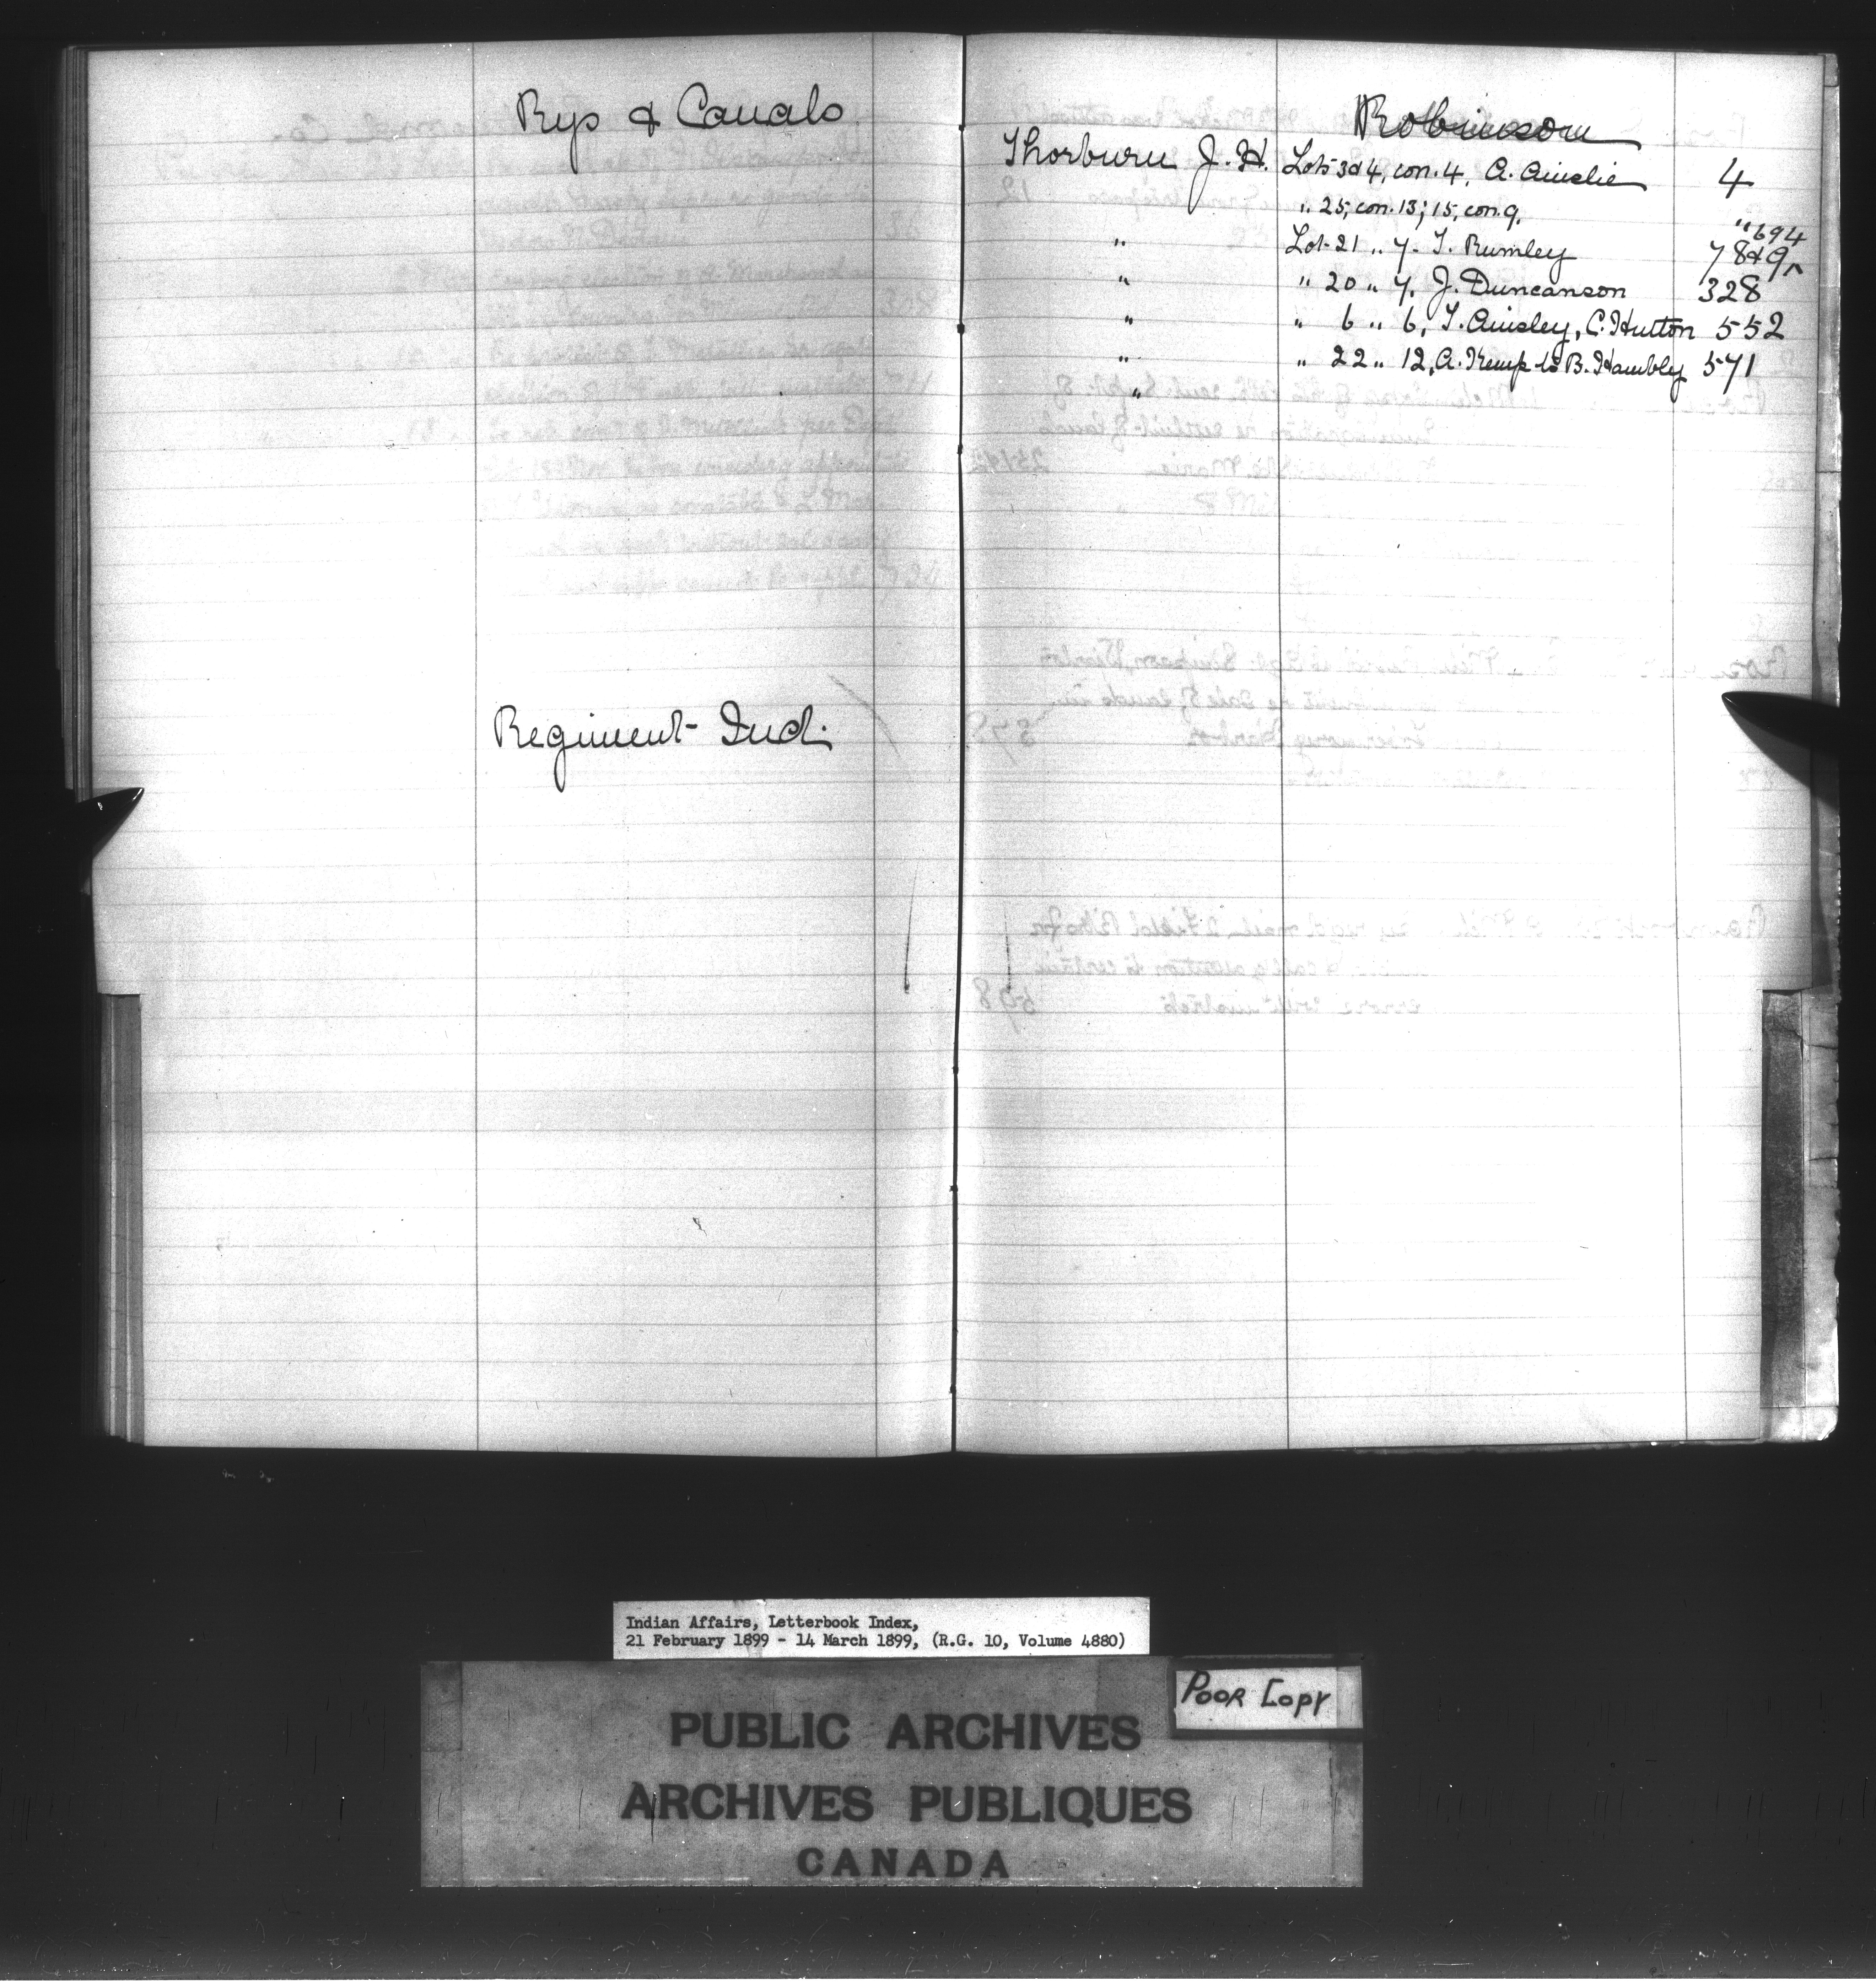 Rys & Canals
Regiment Ind.
Robinson
Thorburn J. H. Lots 3 & 4, con. 4, A. Ainslie 4
" 25, con. 13; 15, con. 9. " " 694
" Lot 21 " 7. T. Rumley 78&9
" " 20 " 7. J. Duncanson 328
" " 6 " 6, T. Ainsley, C. Hutton 552
" " 22 " 12, A. Kemp to B. Hambly 571
"
Indian Affairs, Letterbook Index,
21 February 1899 - 14 March 1899, (R.G. 10, Volume 4880)
POOR COPY
PUBLIC ARCHIVES
ARCHIVES PUBLIQUES
CANADA